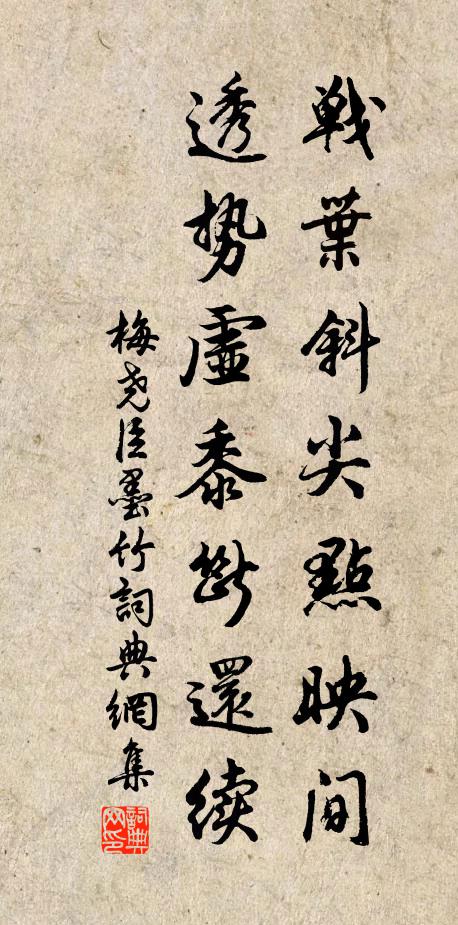 戰葉斜尖點映間
透勢虛黍斷還续
梅尧臣墨竹詞典網集
詞典网印